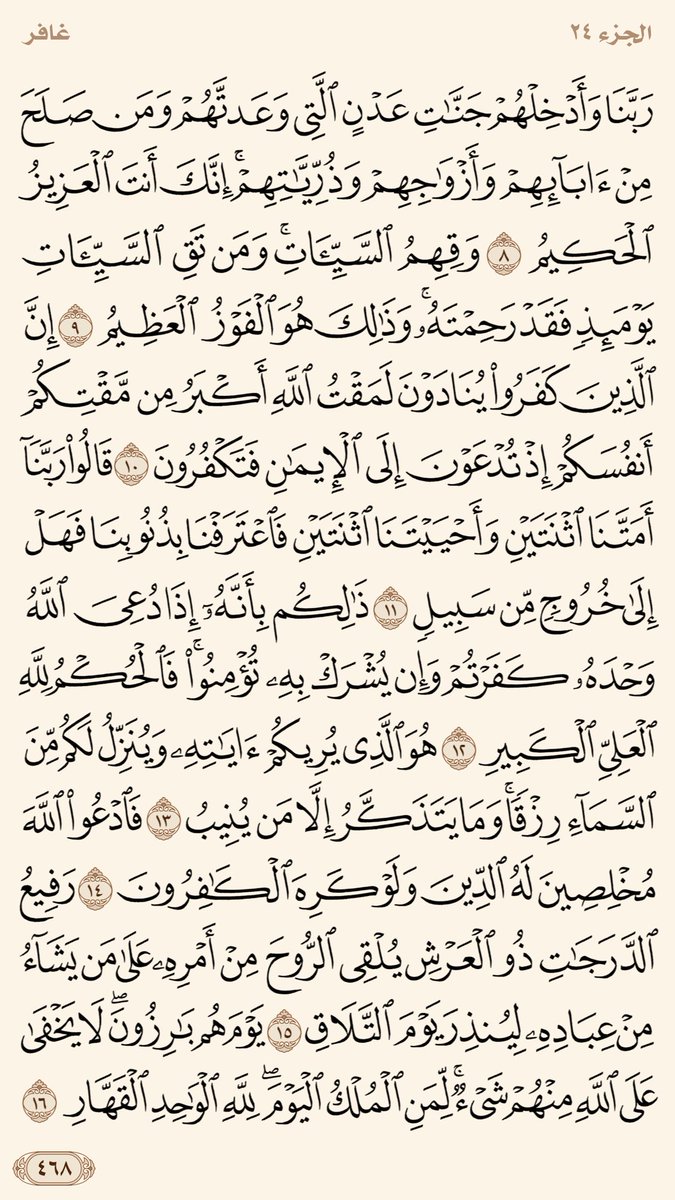 الجزء ٢٤
غافر
رَبَّنَا وَأَدْخِلْهُمْ جَنَّٰتِ عَدْنٍ ٱلَّتِى وَعَدتَّهُمْ وَمَن صَلَحَ
مِنْ ءَابَآئِهِمْ وَأَزْوَٰجِهِمْ وَذُرِّيَّٰتِهِمْ ۚ إِنَّكَ أَنتَ ٱلْعَزِيزُ
ٱلْحَكِيمُ ٨ وَقِهِمُ ٱلسَّيِّـَٔاتِ ۚ وَمَن تَقِ ٱلسَّيِّـَٔاتِ
يَوْمَئِذٍ فَقَدْ رَحِمْتَهُۥ ۚ وَذَٰلِكَ هُوَ ٱلْفَوْزُ ٱلْعَظِيمُ ٩ إِنَّ
ٱلَّذِينَ كَفَرُوا۟ يُنَادَوْنَ لَمَقْتُ ٱللَّهِ أَكْبَرُ مِن مَّقْتِكُمْ
أَنفُسَكُمْ إِذْ تُدْعَوْنَ إِلَى ٱلْإِيمَٰنِ فَتَكْفُرُونَ ١٠ قَالُوا۟ رَبَّنَآ
أَمَتَّنَا ٱثْنَتَيْنِ وَأَحْيَيْتَنَا ٱثْنَتَيْنِ فَٱعْتَرَفْنَا بِذُنُوبِنَا فَهَلْ
إِلَىٰ خُرُوجٍ مِّن سَبِيلٍ ١١ ذَٰلِكُم بِأَنَّهُۥٓ إِذَا دُعِىَ ٱللَّهُ
وَحْدَهُۥ كَفَرْتُمْ وَإِن يُشْرَكْ بِهِۦ تُؤْمِنُوا۟ ۚ فَٱلْحُكْمُ لِلَّهِ
ٱلْعَلِىِّ ٱلْكَبِيرِ ١٢ هُوَ ٱلَّذِى يُرِيكُمْ ءَايَٰتِهِۦ وَيُنَزِّلُ لَكُم مِّنَ
ٱلسَّمَآءِ رِزْقًا ۚ وَمَا يَتَذَكَّرُ إِلَّا مَن يُنِيبُ ١٣ فَٱدْعُوا۟ ٱللَّهَ
مُخْلِصِينَ لَهُ ٱلدِّينَ وَلَوْ كَرِهَ ٱلْكَٰفِرُونَ ١٤ رَفِيعُ
ٱلدَّرَجَٰتِ ذُو ٱلْعَرْشِ يُلْقِى ٱلرُّوحَ مِنْ أَمْرِهِۦ عَلَىٰ مَن يَشَآءُ
مِنْ عِبَادِهِۦ لِيُنذِرَ يَوْمَ ٱلتَّلَاقِ ١٥ يَوْمَ هُم بَٰرِزُونَ ۖ لَا يَخْفَىٰ
عَلَى ٱللَّهِ مِنْهُمْ شَىْءٌ ۚ لِّمَنِ ٱلْمُلْكُ ٱلْيَوْمَ ۖ لِلَّهِ ٱلْوَٰحِدِ ٱلْقَهَّارِ ١٦
٤٦٨